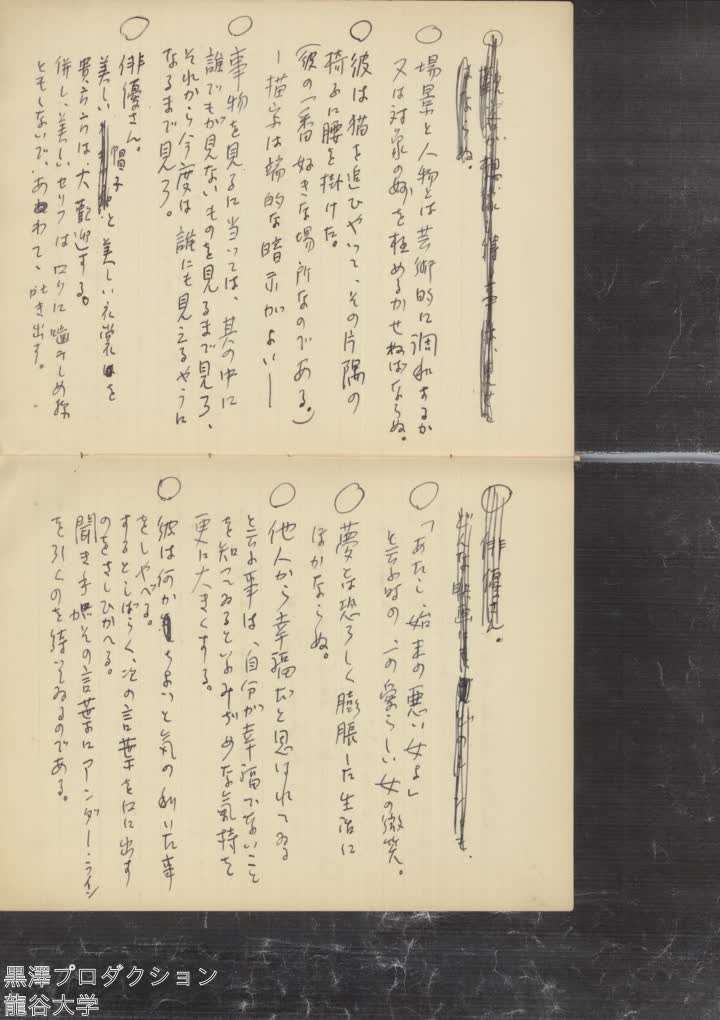 場景と人物とは芸術的に調和するか
又は対象の妙を極めるかせねばならぬ。
彼は猫を追ひやって、その片隅の
椅子に腰を掛けた。
(彼の一番好きな場所なのである。)
ー描写は端的な暗示がよいー
事物を見るに当っては、其の中に
誰でもが見ないものを見るまで見ろ、
それから今度は誰にも見えるやうに
なるまで見ろ。
俳優さん。
美しい帽子と美しい衣裳を
貴方方は、大歓迎する。
併し、美しいセリフはロクに噛みしめ様
ともしないで、あわてゝ吐き出す。
俳優さん。
どんな映画にも
「あたし、始末の悪い女よ」
と云ふ時の、この愛らしい女の微笑。
夢とは恐ろしく膨脹した生活に
ほかならぬ。
他人から幸福だと思はれてゐる
と云ふ事は、自分が幸福でないこと
を知ってゐるといふみじめな氣持を
更に大きくする。
彼は何かちょいと気の利いた事
をしゃべる。
するとしばらく、次の言葉を口に出す
のをさしひかへる。
聞き手がその言葉にアンダー・ライン
を引くのを待ってゐるのである。
黒澤プロダクション
龍谷大学